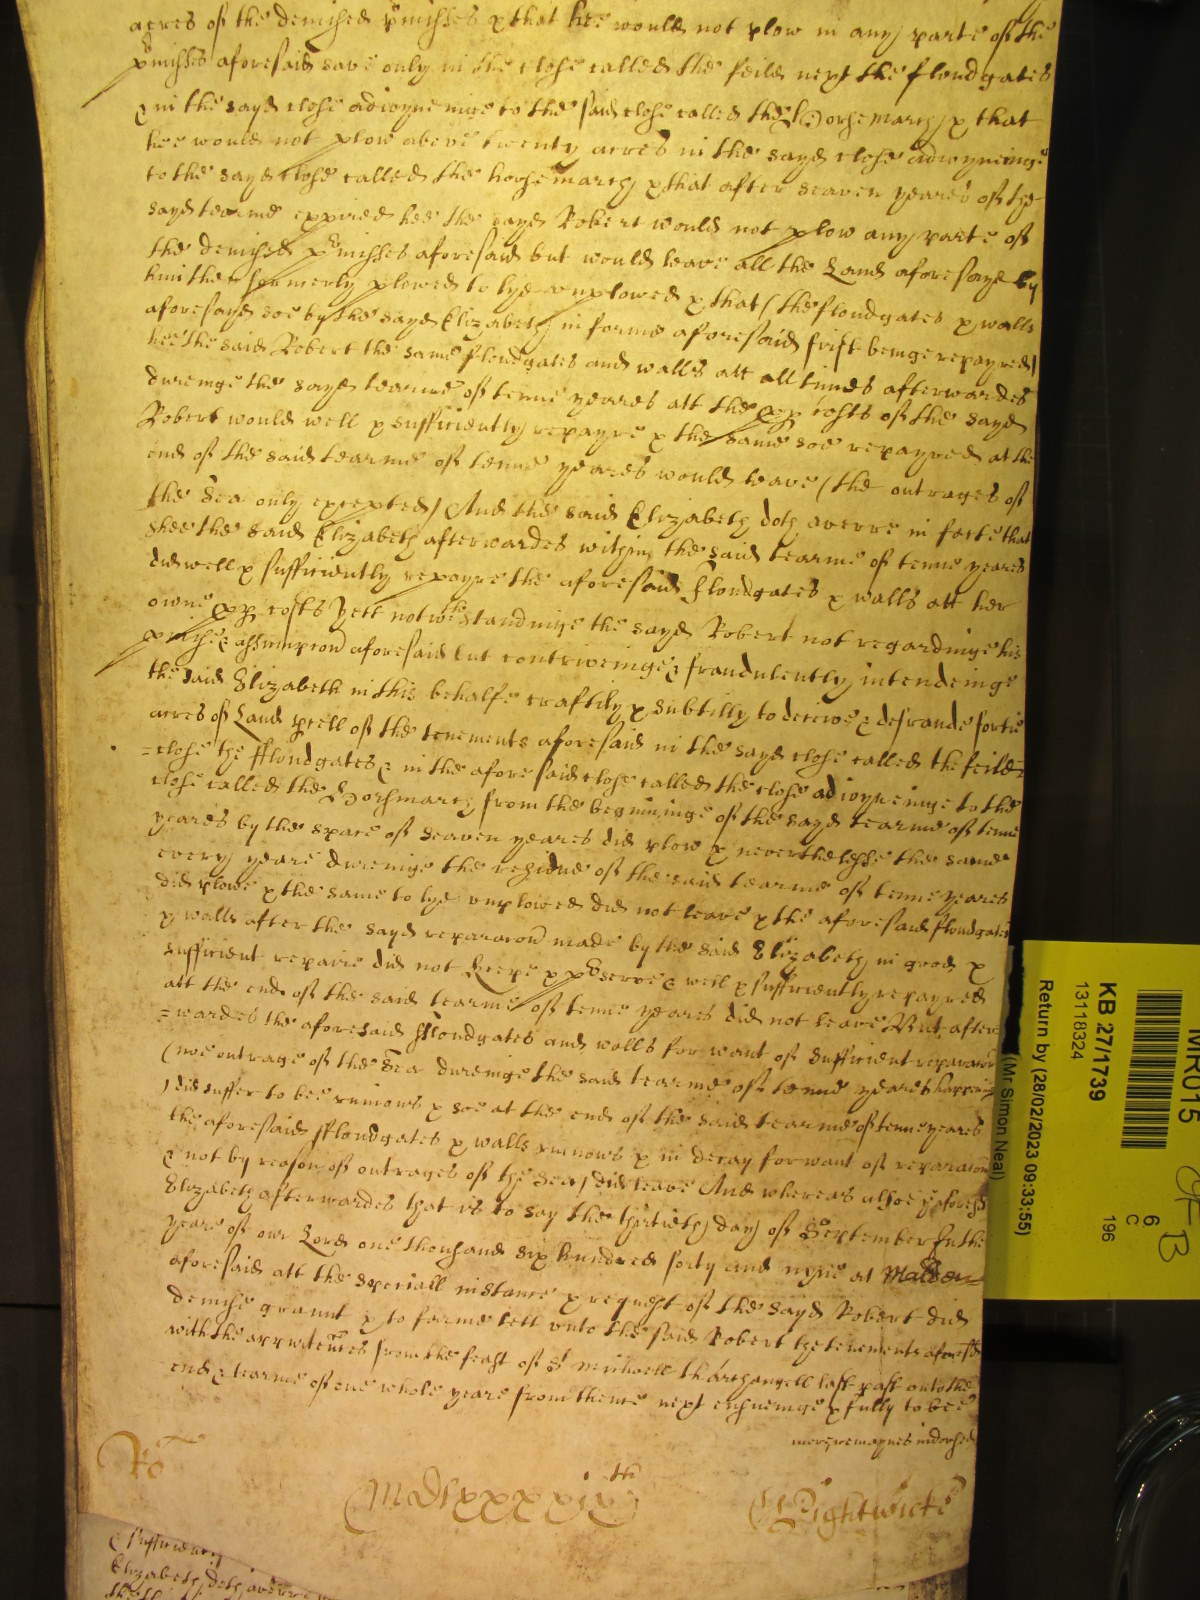 acres of the demised p̱misses & that hee would not plow in any parte of the
p̱misses aforesaid save only in the close called the feild next the floudgates
& in the sayd close adioyneinge to the said close called the Horse march & that
hee would not plow above twenty acres in the sayd close adioyneinge
to the sayd close called the horse march & that after seaven yeares of the
sayd tearme expired hee the sayd Robert would not plow any parte of
the demised p̱misses aforesaid but would leave all the Land aforesayd by
him then formerly plowed to lye unplowed & that (the floudgates & walls
aforesayd soe by the sayd Elizabeth in forme aforesaid first beinge repayred)
hee the said Robert the same floudgates and walls att all times afterwardes
dureinge the sayd tearme of tenne yeares att the pp costs of the sayd
Robert would well & sufficiently repayre & the same soe repayred at the
end of the said tearme of tenne yeares would leave (the outrages of
the Sea only excepted) And the said Elizabeth doth averre in facte that
shee the said Elizabeth afterwardes within the said tearme of tenne yeares
did well & sufficiently repayre the aforesaid floudgates & walls att her
owne pp costs Yett notwthstandinge the sayd Robert not regardinge his
p̱mise & assumpcon aforesaid but contriveinge & fraudulently intendeinge
the said Elizabeth in this behalfe craftily & subtilly to deceive & defraude fortie
acres of Land p̱cell of the tenements aforesaid in the sayd close called the feild
=close the fflondgates & in the aforesaid close called the close adioyneinge to the
close called the Horsmarch from the beginninge of the sayd tearme of tenne
yeares by the space of seaven yeares did plow & neverthelesse the same
every yeare dureinge the residue of the said tearme of tenne yeares
did plowe & the same to lye unplowed did not leave & the aforesaid floudgates
& walls after the sayd reparacon made by the said Elizabeth in good &
sufficient repaire did not Keepe & p̱serve & well & sufficiently repayred
att the end of the said tearme of tenne yeares did not leave But after
=wardes the aforesaid fflondgates and walls for want of sufficient reparacon
(noe outrage of the Sea dureinge the said tearme of tenne yeares happening
) did suffer to bee ruinous & soe at the end of the said tearme of tenne yeares
the aforesaid fflondgates & walls ruinous & in decay for want of reparacon
& not by reason of outrages of the Sea) did leave And whereas alsoe ye aforesd
Elizabeth afterwardes that is to say the thirtieth day of September In the
yeare of our Lord one thousand six hundred forty and nyne at Maldon
aforesaid att the speciall instance & request of the sayd Robert did
demise graunt & to farme lett unto the said Robert the tenements aforesd
with the appurtences from the feast of St Michaell tharchangell last past unto the
end & tearme of one whole yeare from thence next ensueinge & fully to bee
more remaynes indorsed
Ro
MDlxxxxixth
Wightwicke
& sufficiency
Elizabeth doth averre
MR015
KB 27/1739
13118324
Return by (28/02/2023 09:33:55)
(Mr Simon Neal)
6
C
196